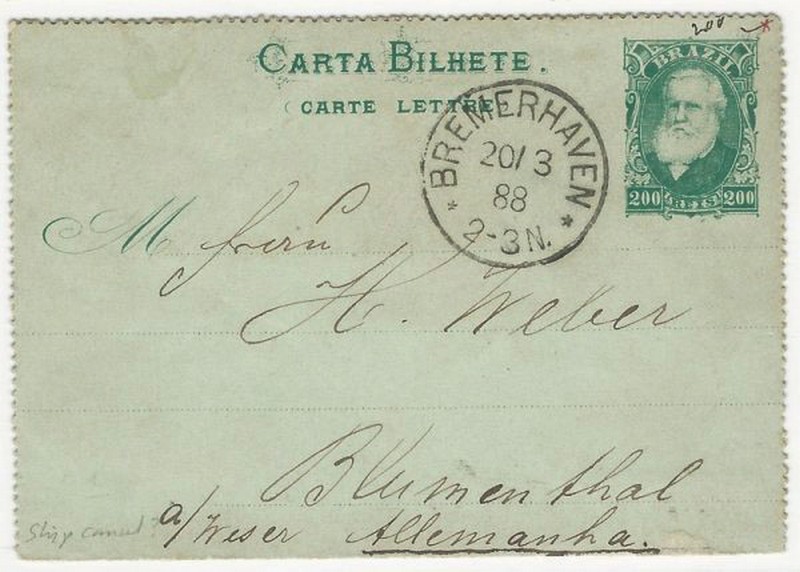 200
CARTA BILHETE.
(CARTE LETTRE)
BRAZIL
200 REIS 200
* BREMERHAVEN *
20/3
88
2-3N.
M Herrn
H. Weber
Blumenthal
a/Weser Allemanha.
Ship cancel?